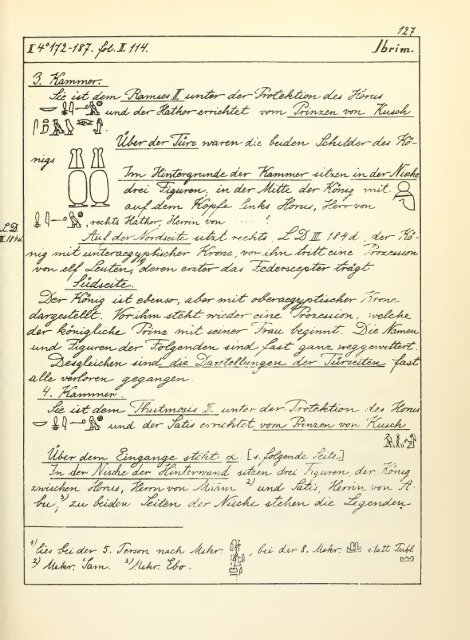 127
I 4° 172-187. fol. I 114. Ibrim.
3. Kammer.
Sie ist dem Ramses II unter der Protektion des Horus
und der Hathor errichtet vom Prinzen von Kusch
Über der Türe waren die beiden Schilder des Kö-
nigs
Im Hintergrunde der Kammer sitzen in der Nische
drei Figuren, in der Mitte der König mit
auf dem Kopfe links Horus, Herr von
rechts Hathor, Herrin von ... !
Auf der Nordseite sitzt rechts L D III 184d, der Kö-
LD
III. 184d
nig mit unteraegyptischer Krone, vor ihn tritt eine Prozession
von elf Leuten, 1) deren erster das Federscepter trägt.
Südseite.
Der König ist ebenso, aber mit oberaegyptischer Krone
dargestellt. Vor ihm steht wieder eine Prozession, welche
der königliche Prinz mit seiner Frau beginnt. Die Namen
und Figuren der Folgenden sind fast ganz weggewittert.
Desgleichen sind die Darstellungen der Türseiten fast
alle verloren gegangen.
4. Kammer.
Sie ist dem Thutmosis III. unter der Protektion des Horus
und der Satis errichtet vom Prinzen von Kusch
Über dem Eingange steht α [s. folgende Seite]
In der Nische der Hinterwand sitzen drei Figuren, der König
zwischen Horus, Herrn von Maām 2) und Satis, Herrin von A-
bu, 3) zu beiden Seiten der Nische stehen die Legenden
1) lies bei der 5. Person nach Mskr. , bei der 8. Mskr. statt Publ
2) Mskr. 3) Mskr. Ebo.